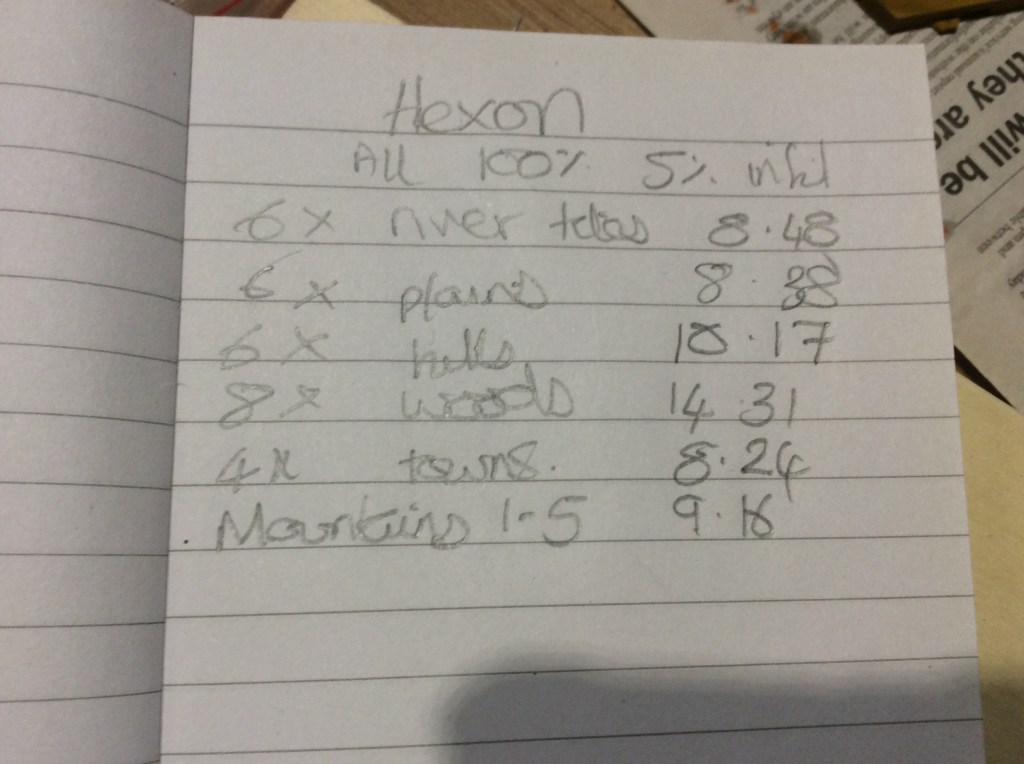 Hexon
All 100% 5% infil
6x river tiles 8.48
6 x plains 8.38
6 x hills 10.17
8 x woods 14 31
4x towns. 8.24
Mountains 1-5 9.16
they are
will be